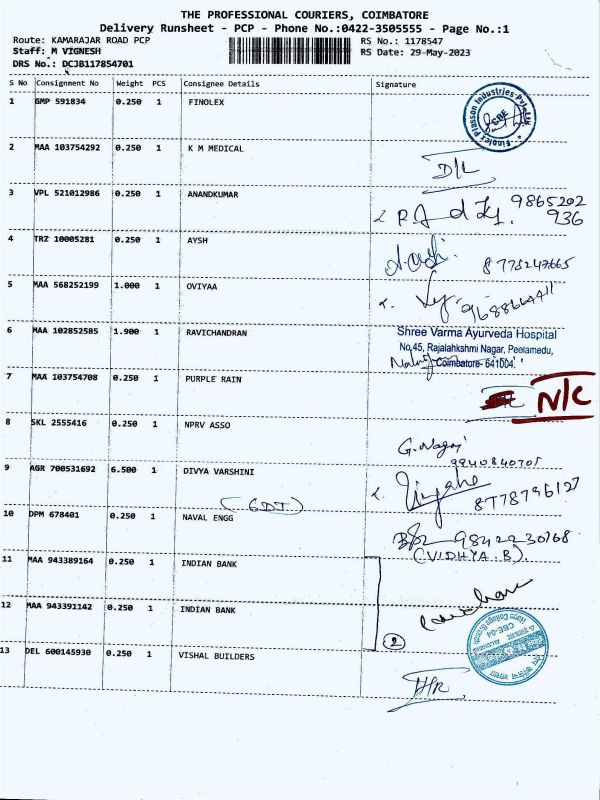 THE PROFESSIONAL COURIERS, COIMBATORE
Delivery Runsheet - PCP - Phone No.:0422-3505555 - Page No.:1
Route: KAMARAJAR ROAD PCP
Staff: M VIGNESH
DRS No.: DCJB117854701
RS No.: 1178547
RS Date: 29-May-2023
S No Consignment No Weight PCS Consignee Details Signature
1 GMP 591834 0.250 1 FINOLEX
Finolex Plasson Industries Pvt Ltd
CBE
2 MAA 103754292 0.250 1 K M MEDICAL
D/L
3 VPL 521012986 0.250 1 ANANDKUMAR
9865202
936
4 TRZ 10005281 0.250 1 AYSH
8778247665
5 MAA 568252199 1.000 1 OVIYAA
6 MAA 102852585 1.900 1 RAVICHANDRAN
Shree Varma Ayurveda Hospital
No.45, Rajalahkshmi Nagar, Peelamedu,
Coimbatore- 641004.
7 MAA 103754708 0.250 1 PURPLE RAIN
N/C
8 SKL 2555416 0.250 1 NPRV ASSO
G. Nagaj
9940840705
9 AGR 700531692 6.500 1 DIVYA VARSHINI
8778796127
(GDT)
10 DPM 678401 0.250 1 NAVAL ENGG
9842230768
(VIDHYA.B).
11 MAA 943389164 0.250 1 INDIAN BANK
12 MAA 943391142 0.250 1 INDIAN BANK
2
CBE-04
13 DEL 600145930 0.250 1 VISHAL BUILDERS